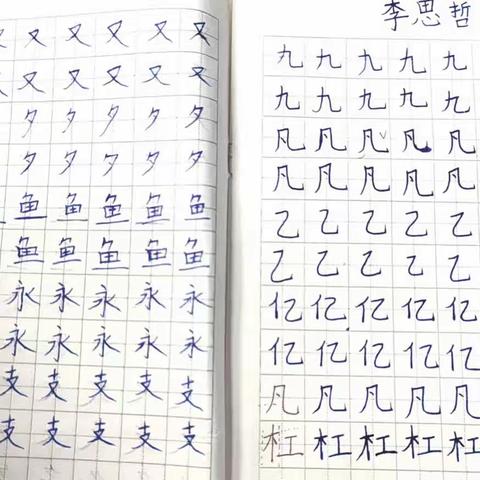 又又又又又又
又又又又又又
夕夕夕夕夕
夕夕夕夕夕
鱼鱼鱼鱼鱼
鱼鱼鱼鱼鱼
永永永永永
永永永永永
支支支支支
支支支支支
李思哲
九九九九九
九九九九九
凡凡凡凡凡
凡凡凡凡凡
乙乙乙乙乙
乙乙乙乙乙
亿亿亿亿亿
亿亿亿亿亿
凡凡凡凡凡
杠杠杠杠杠